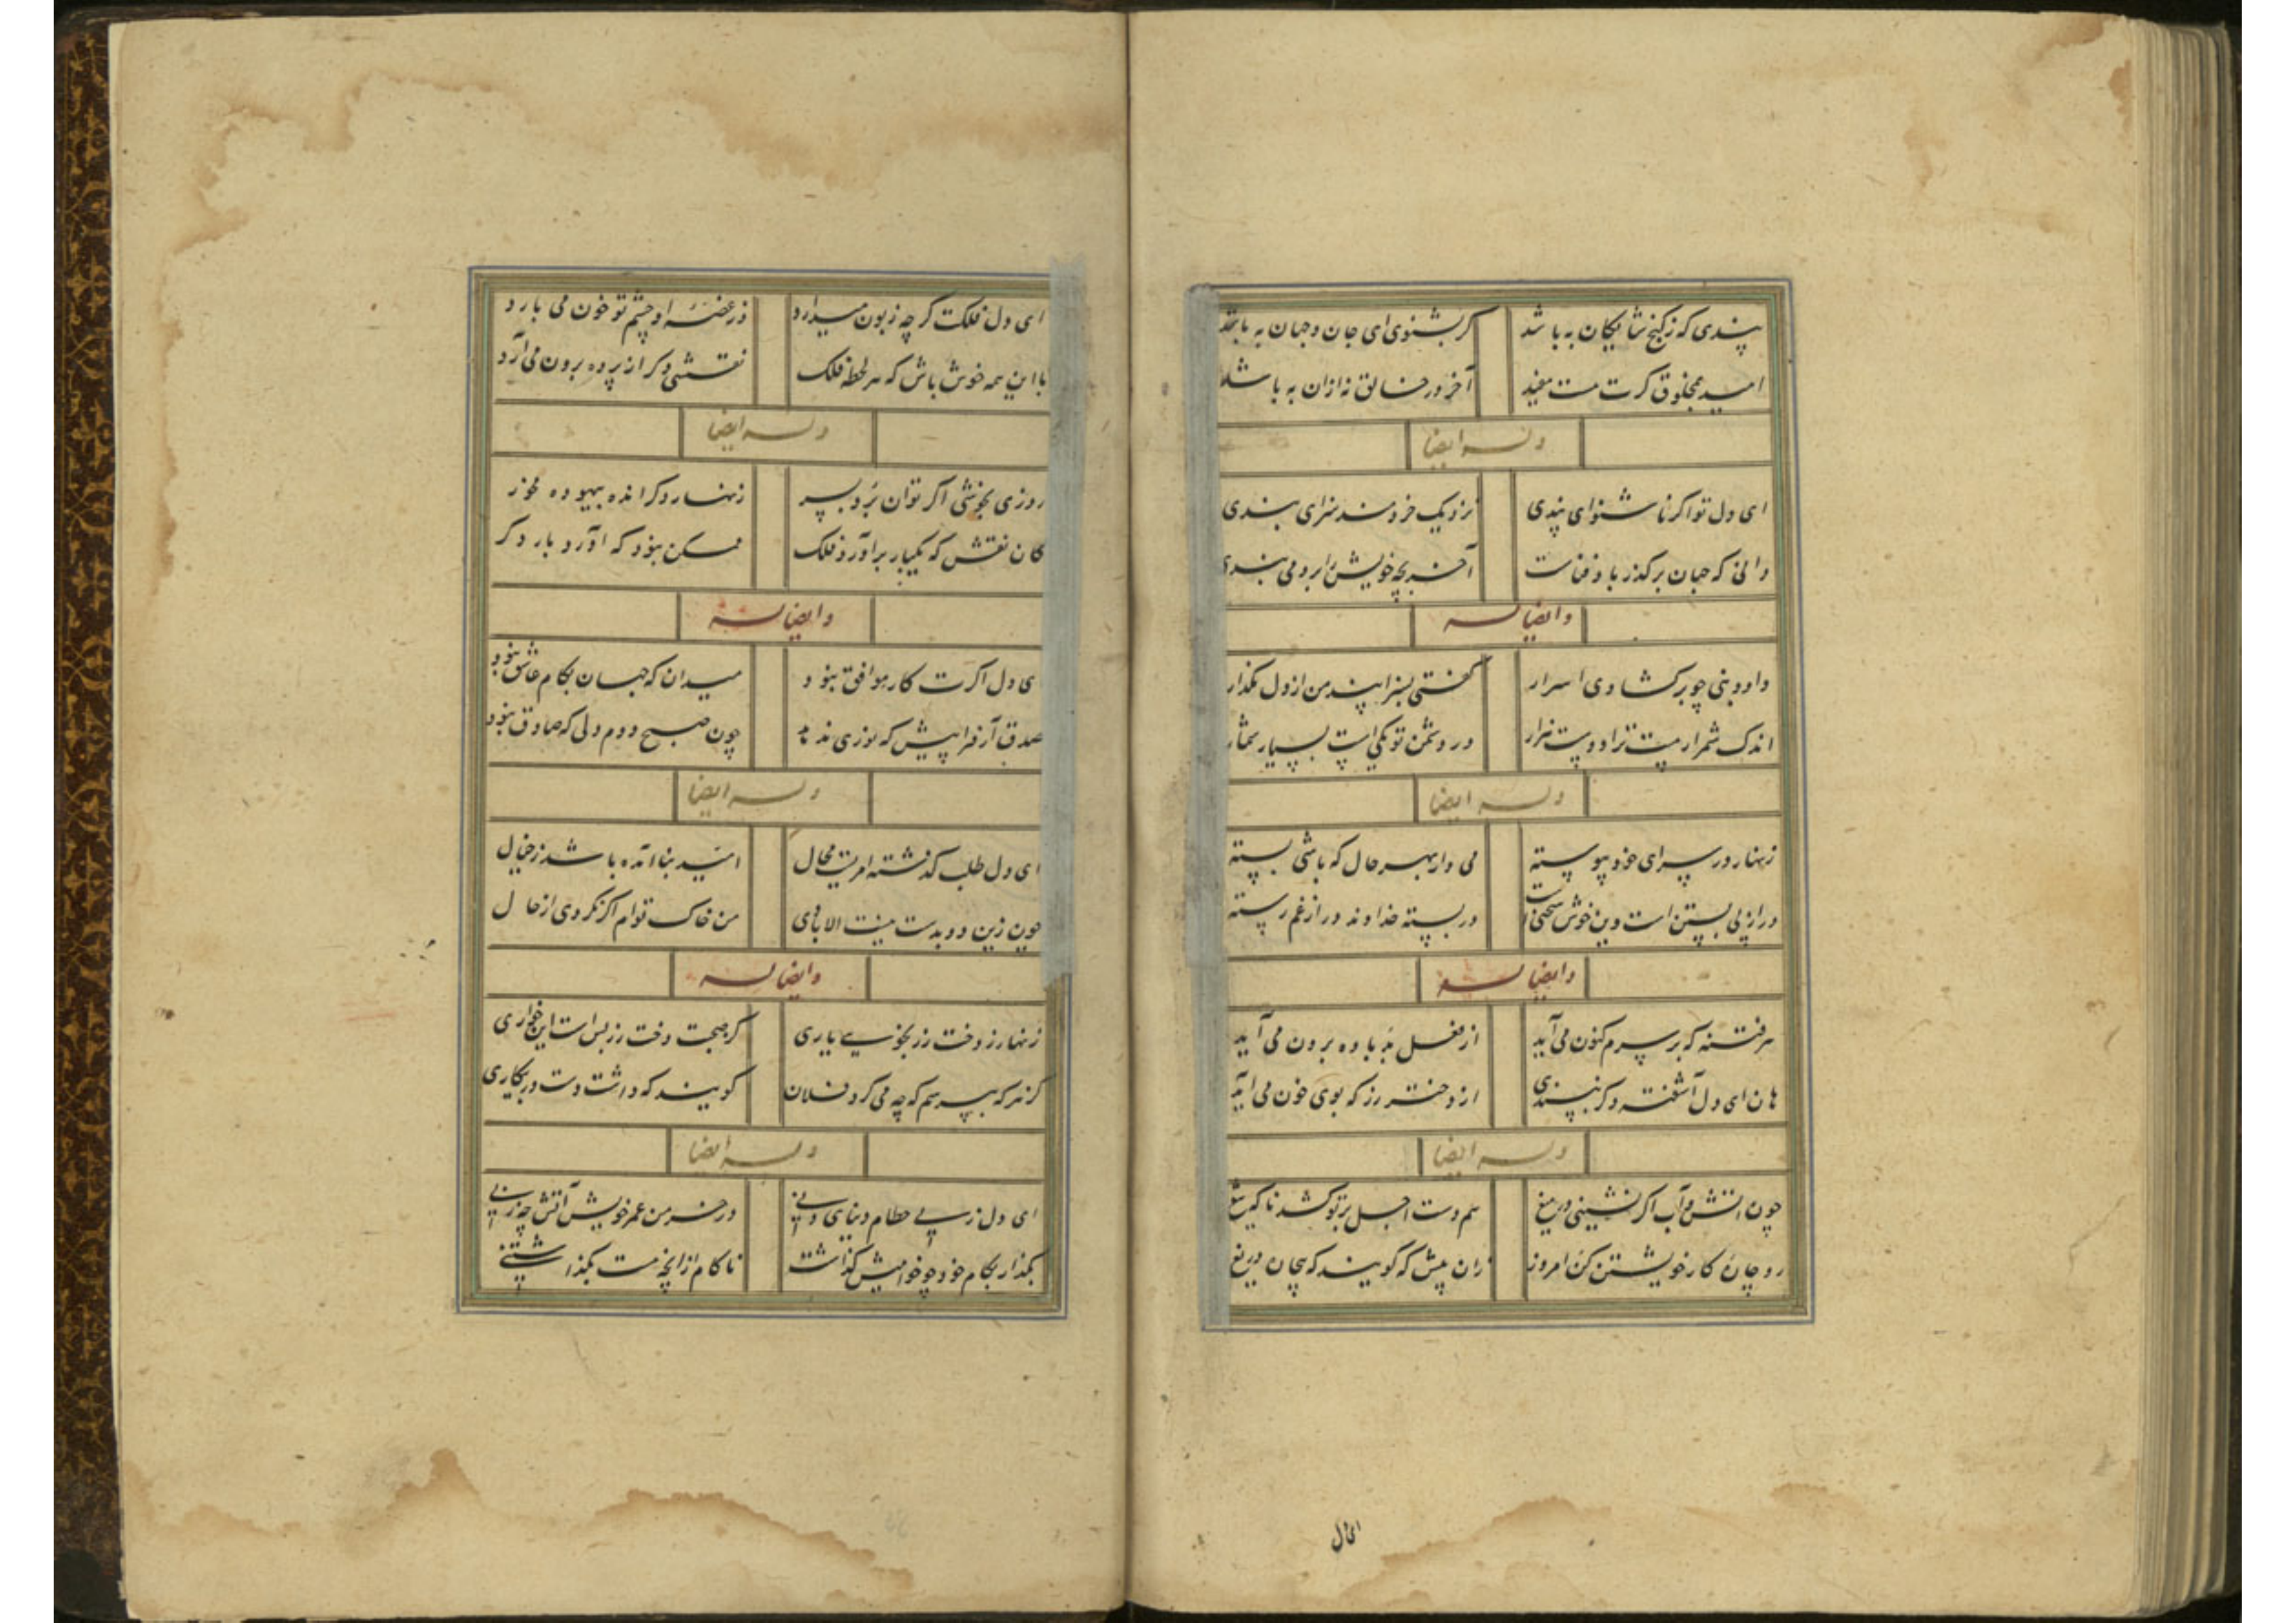 پندی که ز گنج شایگان به باشد
گر بشنوی ای جان و جهان به باشد
امید بمخلوق گرت هست مفید
آخر در خالق نه ازان به باشد
وله ایضا
ای دل تو اگر ناشنوای پندی
نزدیک خردمند سزای بندی
دانی که جهان بر گذر باد فناست
آخر بچه خویش را برو می بندی
وایضا له
داود نبی چو برگشادی اسرار
گفتی پسرا پند من از دل مگذار
اندک شمر ار هست ترا دوست هزار
ور دشمن تو یکیست بسیار شمار
وله ایضا
زنهار در سرای خود پیوسته
می دار بهر حال که باشی بسته
در از پی بستن است وین خوش سخنی است
در بسته خداوند در از غم رسته
وایضا له
هر فتنه که بر سرم کنون می آید
از فعل بد باده برون می آید
هان ای دل آشفته دگر نپسندی
از دختر رز که بوی خون می آید
وله ایضا
چون آتش و آب اگر نشینی در میغ
هم دست اجل بر تو کشد ناگه تیغ
رو چاره کار خویشتن کن امروز
زان پیش که گویند که بیچاره دریغ
ای دل
ای دل فلکت گرچه زبون میدارد
وز غصه او چشم تو خون می بارد
با این همه خوش باش که هر لحظه فلک
نقشی دگر از پرده برون می آرد
وله ایضا
روزی بخوشی اگر توان برد بسر
زنهار دگر انده بیهوده مخور
کان نقش که یکبار برآورد فلک
ممکن نبود که آورد بار دگر
وایضا له
ای دل اگرت کار موافق نبود
میدان که جهان بکام عاشق نبود
صدق آر فرا پیش که نوری ندهد
چون صبح دوم دلی که صادق نبود
وله ایضا
ای دل طلب گذشته امریست محال
امید بنا آمده باشد ز خیال
چون زین دو بدست نیست الا بادی
من خاک توام اگر نگردی از حال
وایضا له
زنهار ز دخت رز نجویی یاری
کز صحبت دخت رز بس است این خواری
کز هر که بپرسم که چه می کرد فلان
گویند که داشت دست در بیکاری
وله ایضا
ای دل ز پی حطام دنیای دنی
در خرمن عمر خویش آتش چه زنی
بگذار بکام خود چو خواهیش گذاشت
ناکام ازانچه هست بگذاشتنی